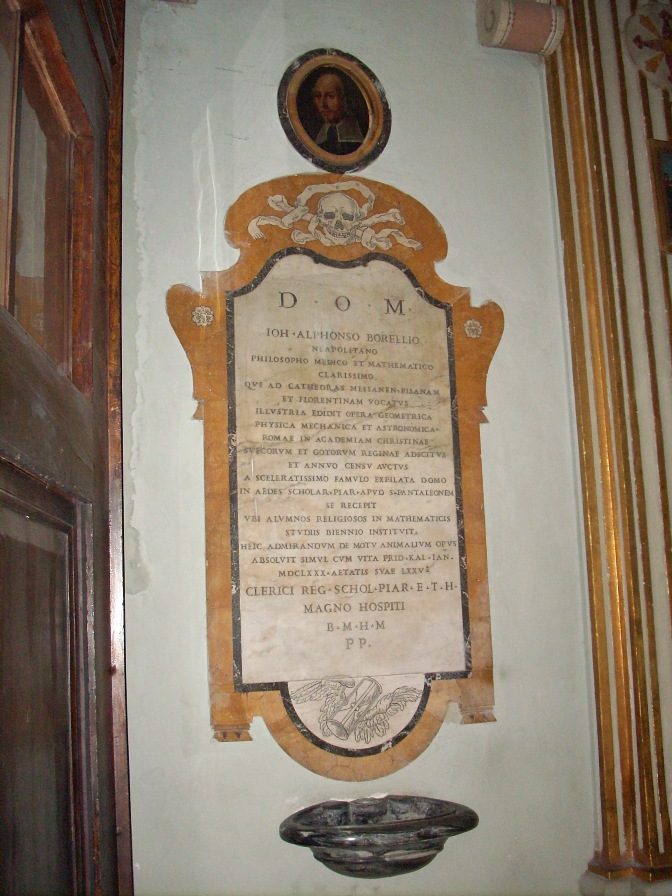 D · O · M
IOH · ALPHONSO BORELLIO
NEAPOLITANO
PHILOSOPHO MEDICO ET MATHEMATICO
CLARISSIMO
QVI AD CATHEDRAS MESSANEN · PISANAM
ET FLORENTINAM VOCATVS
ILLVSTRIA EDIDIT OPERA GEOMETRICA
PHYSICA MECHANICA ET ASTRONOMICA ·
ROMAE IN ACADEMIAM CHRISTINAE
SVECORVM ET GOTORVM REGINAE ADSCITVS
ET ANNVO CENSV AVCTVS
A SCELERATISSIMO FAMVLO EXPILATA DOMO
IN AEDES SCHOLAR · PIAR · APVD S · PANTALEONEM
SE RECEPIT
VBI ALVMNOS RELIGIOSOS IN MATHEMATICIS
STVDIIS BIENNIO INSTITVIT ·
HEIC ADMIRANDVM DE MOTV ANIMALIVM OPVS
ABSOLVIT SIMVL CVM VITA PRID · KAL · IAN ·
MDCLXXX · AETATIS SVAE LXXII ·
CLERICI REG · SCHOL · PIAR · E · T · H ·
MAGNO HOSPITI
B · M · H · M
P P .